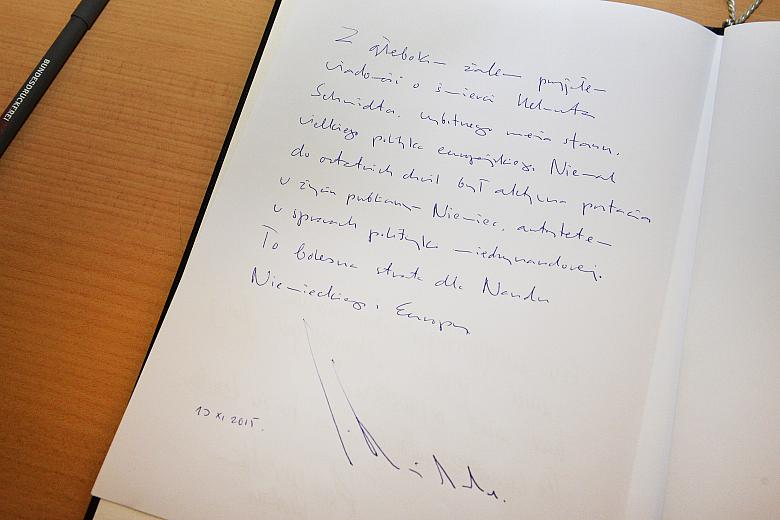 BUNDESDRUCKEREI
Z głębokim żalem przyjąłem
wiadomość o śmierci Helmuta
Schmidta, wybitnego męża stanu,
wielkiego polityka europejskiego. Niemal
do ostatnich chwil był aktywną postacią
w życiu publicznym Niemiec, autorytetem
w sprawach polityki międzynarodowej.
To bolesna strata dla Narodu
Niemieckiego i Europy
13 XI 2015.